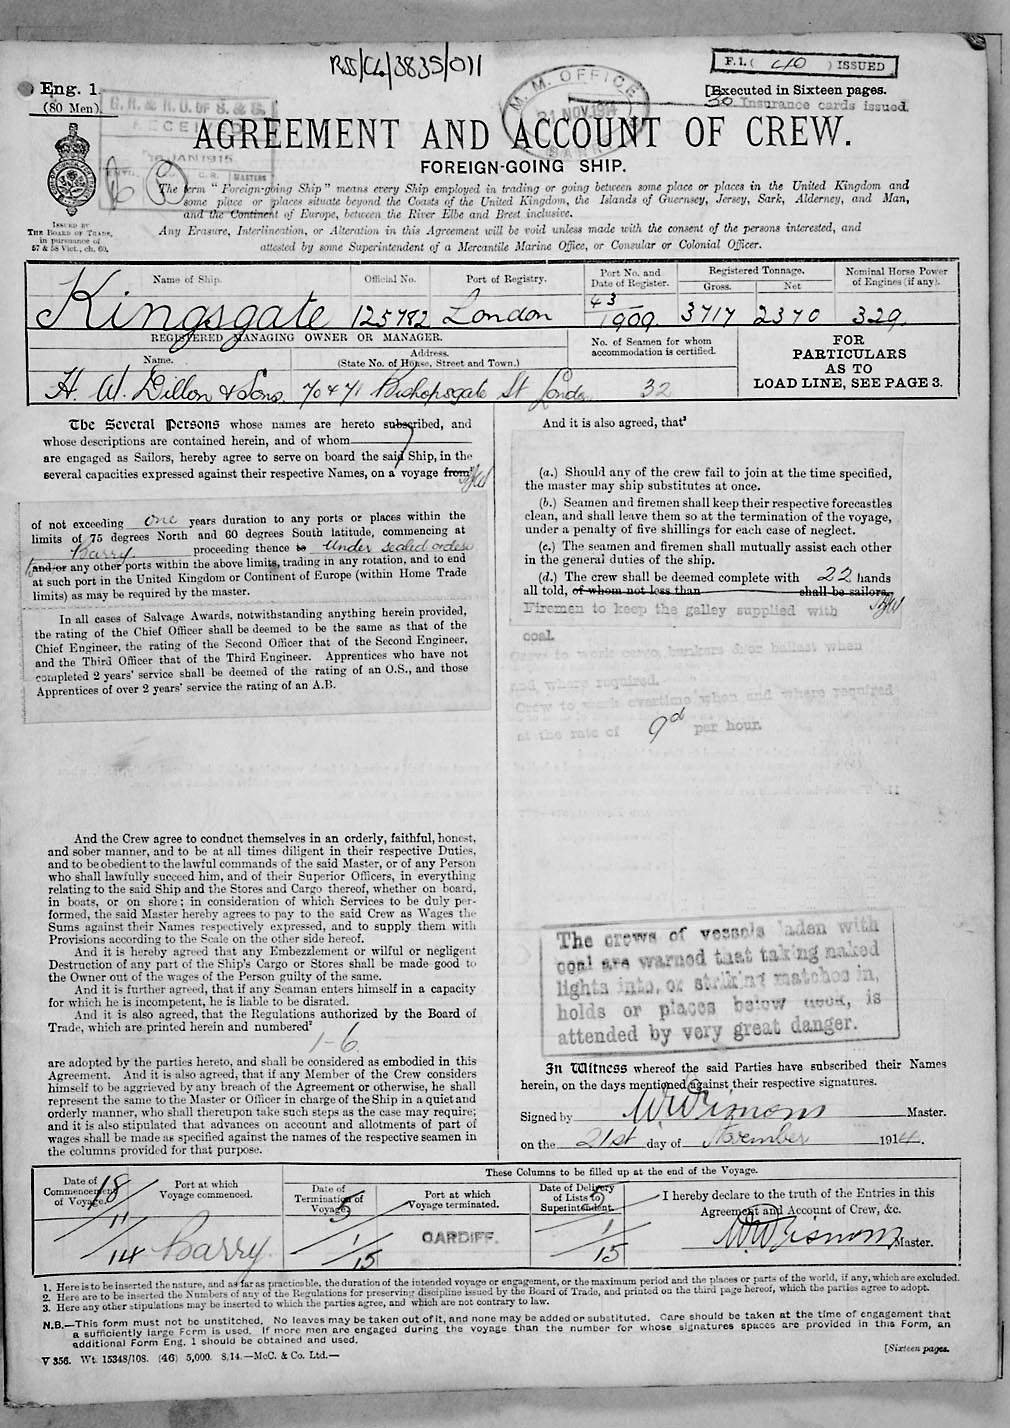 RSS/CL/3835/011
F.1. ( 40 ) ISSUED
Eng. 1.
(80 Men).
[Executed in Sixteen pages.
30 Insurance cards issued.
G. R. & R. O. OF S. & S.
RECEIVED
JAN 1915
M. M. OFFICE
21 NOV. 1914
BARRY
AGREEMENT AND ACCOUNT OF CREW.
FOREIGN-GOING SHIP.
The term "Foreign-going Ship" means every Ship employed in trading or going between some place or places in the United Kingdom and
some place or places situate beyond the Coasts of the United Kingdom, the Islands of Guernsey, Jersey, Sark, Alderney, and Man,
and the Continent of Europe, between the River Elbe and Brest inclusive.
ISSUED BY
THE BOARD OF TRADE,
in pursuance of
57 & 58 Vict., ch. 60.
Any Erasure, Interlineation, or Alteration in this Agreement will be void unless made with the consent of the persons interested, and
attested by some Superintendent of a Mercantile Marine Office, or Consular or Colonial Officer.
Name of Ship. Official No. Port of Registry. Port No. and Date of Register. Registered Tonnage. Gross. Net Nominal Horse Power of Engines (if any).
Kingsgate 125782 London 43 1909 3717 2370 329.
REGISTERED MANAGING OWNER OR MANAGER.
Name. Address. (State No. of House, Street and Town.)
No. of Seamen for whom accommodation is certified.
FOR
PARTICULARS
AS TO
LOAD LINE, SEE PAGE 3.
H. W. Dillon & Sons. 70 & 71 Bishopsgate St London 32
The Several Persons whose names are hereto subscribed, and
whose descriptions are contained herein, and of whom
are engaged as Sailors, hereby agree to serve on board the said Ship, in the
several capacities expressed against their respective Names, on a voyage from
of not exceeding one years duration to any ports or places within the
limits of 75 degrees North and 60 degrees South latitude, commencing at
Barry proceeding thence to Under sealed orders
and/or any other ports within the above limits, trading in any rotation, and to end
at such port in the United Kingdom or Continent of Europe (within Home Trade
limits) as may be required by the master.
In all cases of Salvage Awards, notwithstanding anything herein provided,
the rating of the Chief Officer shall be deemed to be the same as that of the
Chief Engineer, the rating of the Second Officer that of the Second Engineer,
and the Third Officer that of the Third Engineer. Apprentices who have not
completed 2 years' service shall be deemed of the rating of an O.S., and those
Apprentices of over 2 years' service the rating of an A.B.
And the Crew agree to conduct themselves in an orderly, faithful, honest,
and sober manner, and to be at all times diligent in their respective Duties,
and to be obedient to the lawful commands of the said Master, or of any Person
who shall lawfully succeed him, and of their Superior Officers, in everything
relating to the said Ship and the Stores and Cargo thereof, whether on board,
in boats, or on shore; in consideration of which Services to be duly per-
formed, the said Master hereby agrees to pay to the said Crew as Wages the
Sums against their Names respectively expressed, and to supply them with
Provisions according to the Scale on the other side hereof.
And it is hereby agreed that any Embezzlement or wilful or negligent
Destruction of any part of the Ship's Cargo or Stores shall be made good to
the Owner out of the wages of the Person guilty of the same.
And it is further agreed, that if any Seaman enters himself in a capacity
for which he is incompetent, he is liable to be disrated.
And it is also agreed, that the Regulations authorized by the Board of
Trade, which are printed herein and numbered²
1-6.
are adopted by the parties hereto, and shall be considered as embodied in this
Agreement. And it is also agreed, that if any Member of the Crew considers
himself to be aggrieved by any breach of the Agreement or otherwise, he shall
represent the same to the Master or Officer in charge of the Ship in a quiet and
orderly manner, who shall thereupon take such steps as the case may require;
and it is also stipulated that advances on account and allotments of part of
wages shall be made as specified against the names of the respective seamen in
the columns provided for that purpose.
And it is also agreed, that³
(a.) Should any of the crew fail to join at the time specified,
the master may ship substitutes at once.
(b.) Seamen and firemen shall keep their respective forecastles
clean, and shall leave them so at the termination of the voyage,
under a penalty of five shillings for each case of neglect.
(c.) The seamen and firemen shall mutually assist each other
in the general duties of the ship.
(d.) The crew shall be deemed complete with 22 hands
all told, of whom not less than shall be sailors.
Firemen to keep the galley supplied with
coal.
Crew to work cargo, bunkers &/or ballast when
and, where required.
Crew to work overtime when and where required
at the rate of 9d per hour.
The crews of vessels laden with
coal are warned that taking naked
lights into, or striking matches in,
holds or places below deck, is
attended by very great danger.
In Witness whereof the said Parties have subscribed their Names
herein, on the days mentioned against their respective signatures.
Signed by Master.
on the 21st day of November 1914.
These Columns to be filled up at the end of the Voyage.
Date of Commencement of Voyage. Port at which Voyage commenced. Date of Termination of Voyage. Port at which Voyage terminated. Date of Delivery of Lists to Superintendent.
18/11/14 Barry 1/15 CARDIFF. 1/15
I hereby declare to the truth of the Entries in this
Agreement and Account of Crew, &c.
Master.
1. Here is to be inserted the nature, and as far as practicable, the duration of the intended voyage or engagement, or the maximum period and the places or parts of the world, if any, which are excluded.
2. Here are to be inserted the Numbers of any of the Regulations for preserving discipline issued by the Board of Trade, and printed on the third page hereof, which the parties agree to adopt.
3. Here any other stipulations may be inserted to which the parties agree, and which are not contrary to law.
N.B.—This form must not be unstitched. No leaves may be taken out of it, and none may be added or substituted. Care should be taken at the time of engagement that
a sufficiently large Form is used. If more men are engaged during the voyage than the number for whose signatures spaces are provided in this Form, an
additional Form Eng. 1 should be obtained and used.
[Sixteen pages.
V 356. Wt. 15348/108. (46) 5,000. 8/14.—McC. & Co. Ltd.—